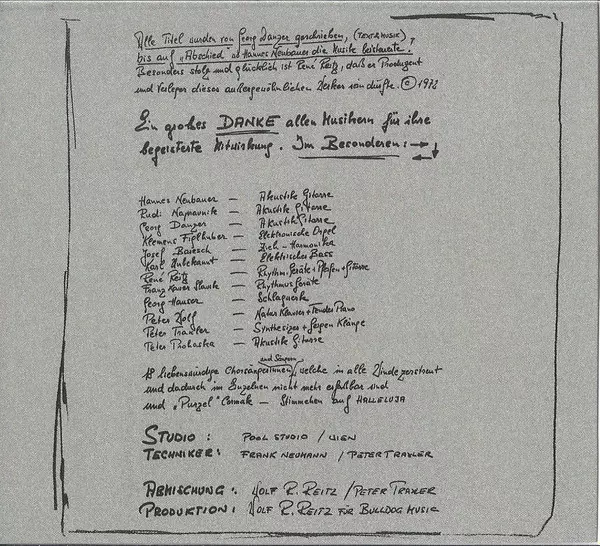 Alle Titel wurden von Georg Danzer geschrieben, (TEXT & MUSIK)
bis auf "Abschied" wo Hannes Neubauer die Musik beisteuerte.
Besonders stolz und glücklich ist René Reitz, daß er Produzent
und Verleger dieses außergewöhnlichen Werkes sein durfte. © 1972
Ein großes DANKE allen Musikern für ihre
begeisterte Mitwirkung. Im Besonderen:
Hannes Neubauer — Akustik Gitarre
Rudi Napravnik — Akustik Gitarre
Georg Danzer — Akustik Gitarre
Klemens Figlhuber — Elektronische Orgel
Josef — Zieh-Harmonika
Karl Unbekannt — Elektrischer Bass
René Reitz — Rhythm. Geräte + Pfeifen + Gitarre
Franz Xaver Slavik — Rhythmus Geräte
Georg Hauser — Schlagwerk
Peter Wolf — Natur Klavier + Fender Piano
Peter Traxler — Synthesizer + Geigen Klänge
Peter Prohaska — Akustik Gitarre
18 liebenswürdige Chorsängerinnen und Sängern, welche in alle Winde zerstreut
und dadurch im Einzelnen nicht mehr erfaßbar sind
und "Purzel" Cermak — Stimmchen auf HALLELUJA
STUDIO: POOL STUDIO / WIEN
TECHNIKER: FRANK NEUMANN / PETER TRAXLER
ABMISCHUNG: WOLF R. REITZ / PETER TRAXLER
PRODUKTION: WOLF R. REITZ FÜR BULLDOG MUSIC